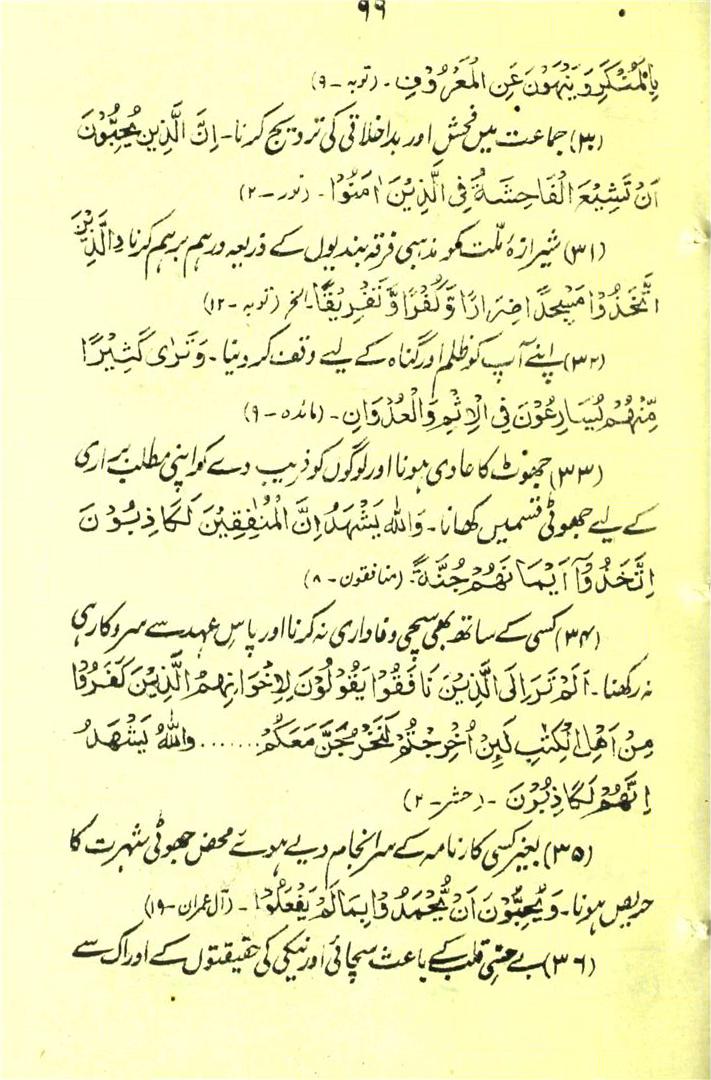 ۹۹
بِالْمُنْكَرِ وَيَنْهَوْنَ عَنِ الْمَعْرُوْفِ۔ (توبہ - ۹)
(۳۰) جماعت میں فحش اور بداخلاقی کی ترویج کرنا۔ اِنَّ الَّذِيْنَ يُحِبُّوْنَ
اَنْ تَشِيْعَ الْفَاحِشَةُ فِی الَّذِيْنَ اٰمَنُوْا۔ (نور - ۲)
(۳۱) شیرازۂ ملّت کو مذہبی فرقہ بندیوں کے ذریعہ درہم برہم کرنا وَالَّذِيْنَ
اتَّخَذُوْا مَسْجِدًا ضِرَارًا وَّكُفْرًا وَّتَفْرِيْقًا۔ الخ (توبہ - ۱۲)
(۳۲) اپنے آپ کو ظلم اور گناہ کے لیے وقف کر دینا۔ وَتَرٰی كَثِيْرًا
مِّنْهُمْ يُسَارِعُوْنَ فِی الْاِثْمِ وَالْعُدْوَانِ۔ (مائدہ - ۹)
(۳۳) جھوٹ کا عادی ہونا اور لوگوں کو فریب دے کو اپنی مطلب براری
کے لیے جھوٹی قسمیں کھانا۔ وَاللّٰهُ يَشْهَدُ اِنَّ الْمُنٰفِقِيْنَ لَكَاذِبُوْنَ
اِتَّخَذُوْٓا اَيْمَانَهُمْ جُنَّةً۔ (منافقون - ۸)
(۳۴) کسی کے ساتھ بھی سچی وفاداری نہ کرنا اور پاسِ عہد سے سروکار ہی
نہ رکھنا۔ اَلَمْ تَرَ اِلَی الَّذِيْنَ نَافَقُوْا يَقُوْلُوْنَ لِاِخْوَانِهِمُ الَّذِيْنَ كَفَرُوْا
مِنْ اَهْلِ الْكِتٰبِ لَئِنْ اُخْرِجْتُمْ لَنَخْرُجَنَّ مَعَكُمْ ....... وَاللّٰهُ يَشْهَدُ
اِنَّهُمْ لَكَاذِبُوْنَ - (حشر - ۲)
(۳۵) بغیر کسی کارنامہ کے سرانجام دیے ہوئے محض جھوٹی شہرت کا
حریص ہونا۔ وَيُحِبُّوْنَ اَنْ يُّحْمَدُوْا بِمَا لَمْ يَفْعَلُوْا - (آل عمران - ۱۹)
(۳۶) بے حسیِ قلب کے باعث سچائی اور نیکی کی حقیقتوں کے ادراک سے